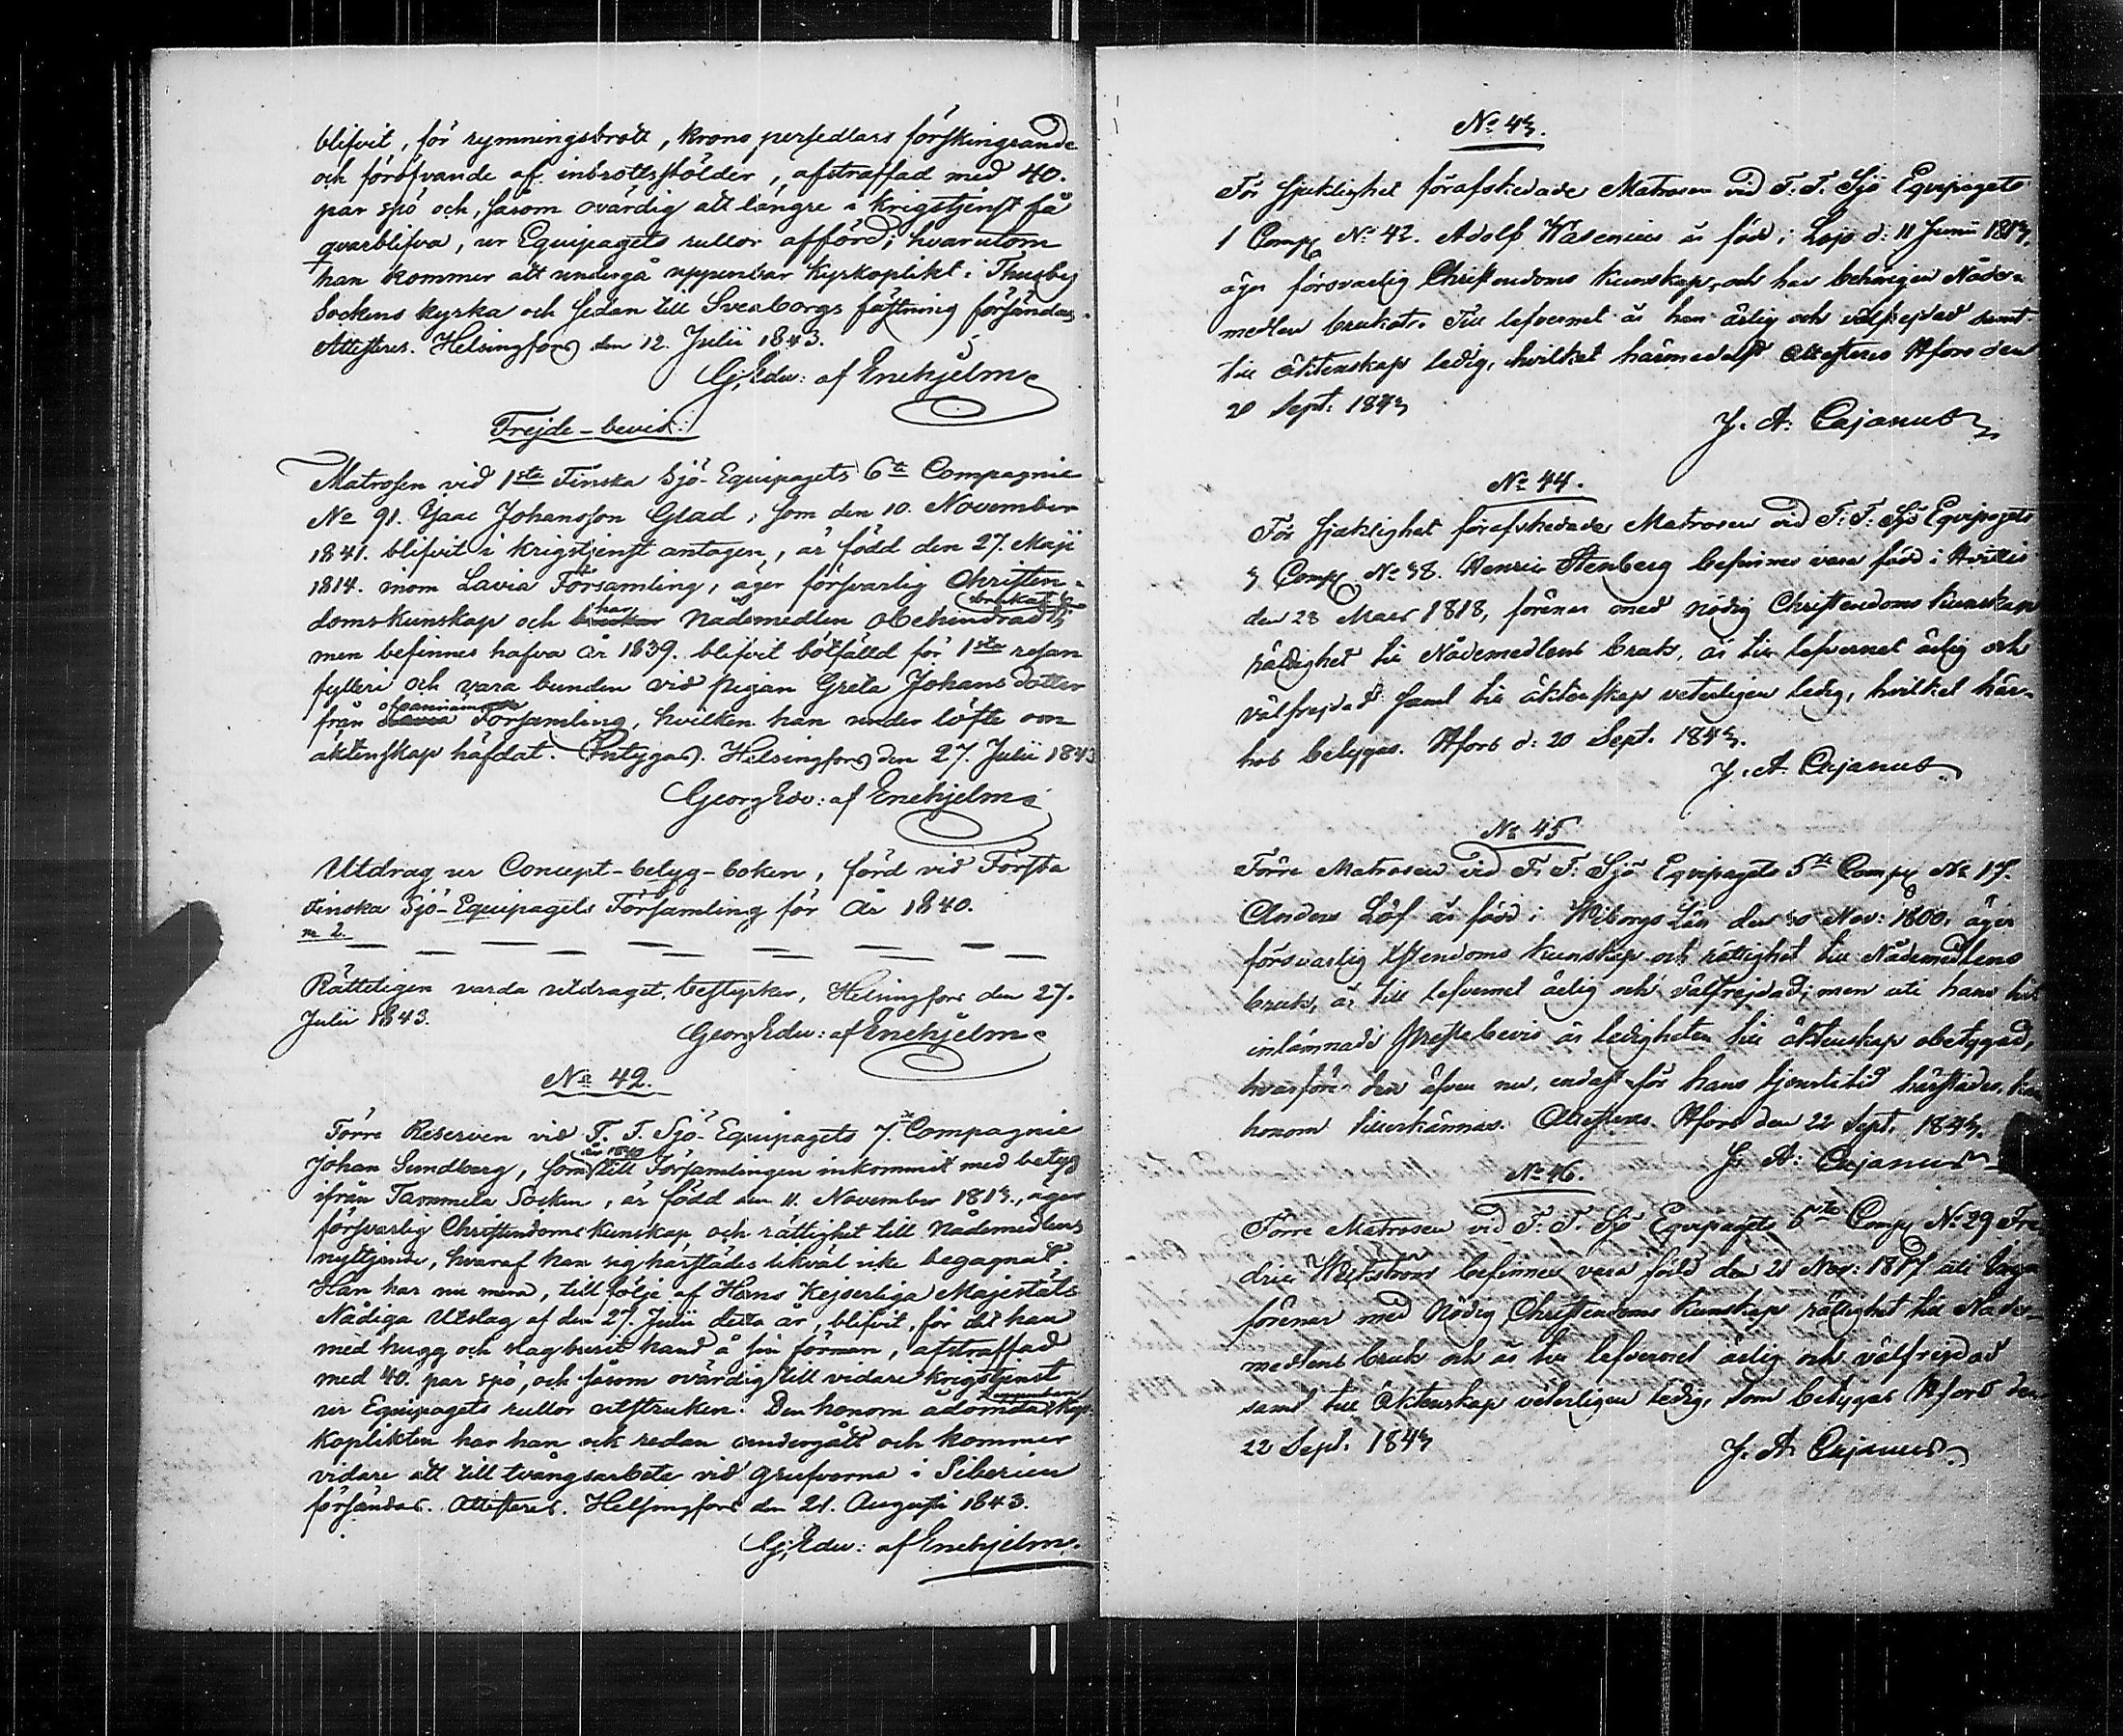 blifvit, för rymningsbrott, krono persedlars förskingrande
och föröfvande af inbrottsstölder, afstraffad med 40.
par spö och, såsom ovärdig att längre i Krigstjenst få
qvarblifva, ur Equipagets rullor afförd; hvarutom
han kommer att undergå uppenbar Kyrkoplikt i Thusby
Sockens kyrka och sedan till Sveaborgs fästning försändas.
Attesteras. Helsingfors den 12. Julii 1843.
G, Edw: af Enehjelm
Frejde-bevis:
Matrosen vid 1sta Finska Sjö-Equipagets 6te Compagnie
No 91. Isaac Johansson Glad, som den 10. November
1841. blifvit i krigstjenst antagen, är född den 27. Maji
1814. inom Lavia Församling, äger försvarlig Christen-
domskunskap och har Nådemedlen obehindradt brukat
men befinnes hafva år 1839. blifvit botfälld för 1sta resan
fylleri och vara bunden vid pigan Greta Johans dotter
från Församling, hvilken han under löfte om
äktenskap häfdat. Intygas. Helsingfors den 27. Julii 1843
Georg Edv: af Enehjelm
Utdrag ur Concept-betyg-boken, förd vid Första
Finska Sjö-Equipagets Församling för År 1840.
n. 2.
Rätteligen varda utdraget, bestyrker, Helsingfors den 27.
Julii 1843.
Georg Edw: af Enehjelm
No 42.
Förre Reserven vid F. F. Sjö-Equipagets 7. Compagnie
Johan Sundberg, som år 1840 till Församlingen inkommit med betyg
ifrån Tammela Socken, är född den 11. November 1813., äger
försvarlig Christendoms kunskap och rättighet till Nådemedlens
nyttjande, hvaraf han sig härstädes likväl icke begagnat.
Han har nu mera, till följe af Hans Kejserliga Majestäts
Nådiga Utslag af den 27. Julii detta år, blifvit, för det han
med hugg och slag burit hand å sin förman, afstraffad
med 40. par spö, och såsom ovärdig till vidare krigstjenst
ur Equipagets rullor utstruken. Den honom ådömda uppenbara Kyr-
koplikten har han ock redan undergått och kommer
vidare att till tvångsarbete vid grufvorna i Siberien
försändas. Attesteras. Helsingfors den 21. Augusti 1843.
G, Edw: af Enehjelm.
No 43.
För sjuklighet förafskedade Matrosen vid F. F. Sjö Eqvipagets
1 Comp No 42. Adolf Wasenius är född i Lojo d: 11 Junii 1813,
äger försvarlig Christendoms kunskap, och har behörigen Nåde-
medlen brukat. Till lefvernet är han ärlig och välfrejdad samt
till äktenskap ledig, hvilket härmedelst attesteras Hfors den
20 Sept: 1843
J. A. Cajanus
No 44.
För sjuklighet förafskedade Matrosen vid F. F. Sjö Eqvipagets
3 Comp No 38. Henric Stenberg befinnes vara född i
den 28 Mars 1818, förenar med nödig Christendoms kunskap
rättighet till Nådemedlens bruk, är till lefvernet ärlig och
välfrejdad samt till äktenskap veterligen ledig, hvilket här-
hos betygas. Hfors d: 20 Sept. 1843.
J. A. Cajanus
No 45
Förre Matrosen vid F. F. Sjö Eqvipagets 5te Comp No 17.
Anders Löf är född i Wiborgs Län den 30 Nov: 1800. äger
försvarlig Xstendoms kunskap och rättighet till Nådemedlens
bruk, är till lefvernet ärlig och välfrejdad; men uti hans hit
inlämnade Prestebevis är ledigheten till äktenskap obetygad,
hvarföre den äfven nu, endast för hans tjenstetid härstädes, kan
honom tillerkännas. Attesteras. Hfors den 22 Sept. 1843.
J. A. Cajanus
No 46.
Förre Matrosen vid F. F. Sjö Eqvipagets 6te Comp No 29 Fre-
dric Wikström befinnes vara född den 21 Nov: 1817 uti
förenar med Nödig Christendoms kunskap rättighet till Nåde-
medlens bruk och är till lefvernet ärlig och välfrejdad
samt till Äktenskap veterligen ledig, som betygas Hfors den
22 Sept. 1843
J. A. Cajanus